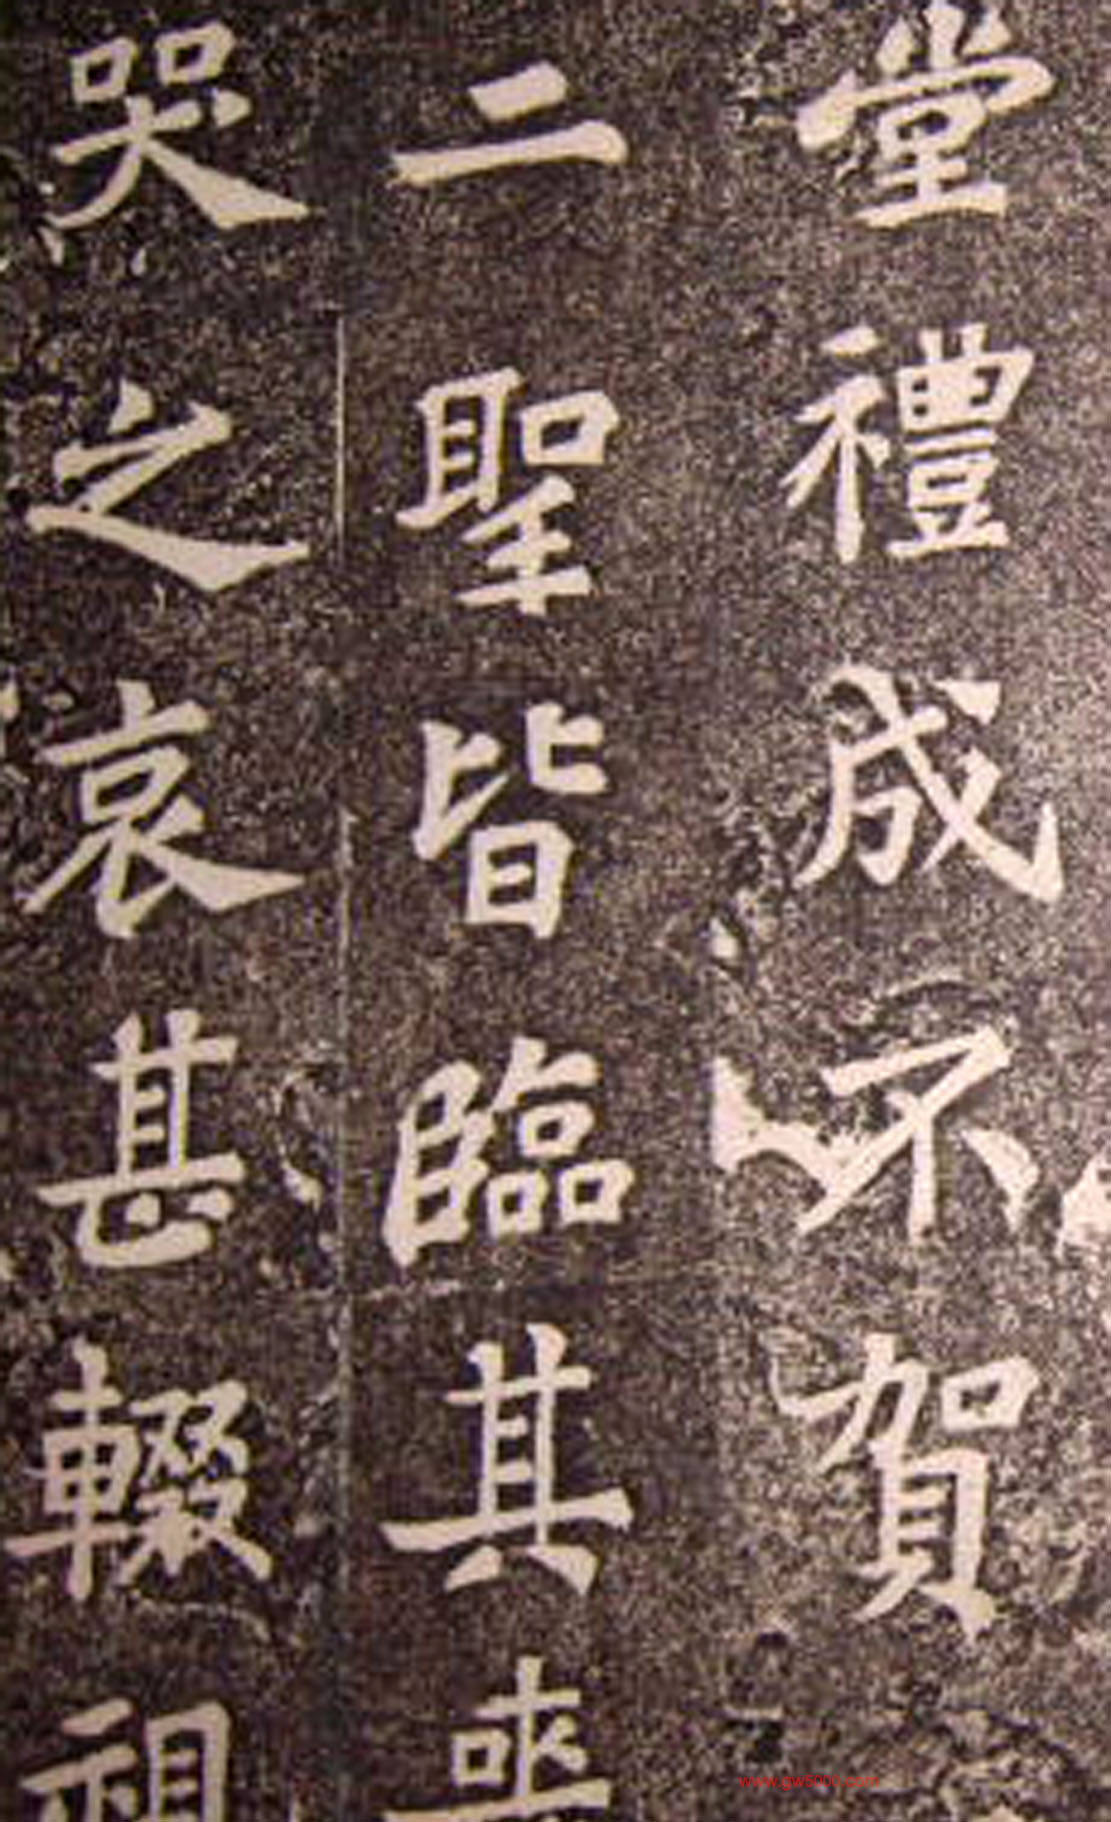 堂禮成不賀
二聖皆臨其喪
哭之哀甚輟祖
www.gw5000.com